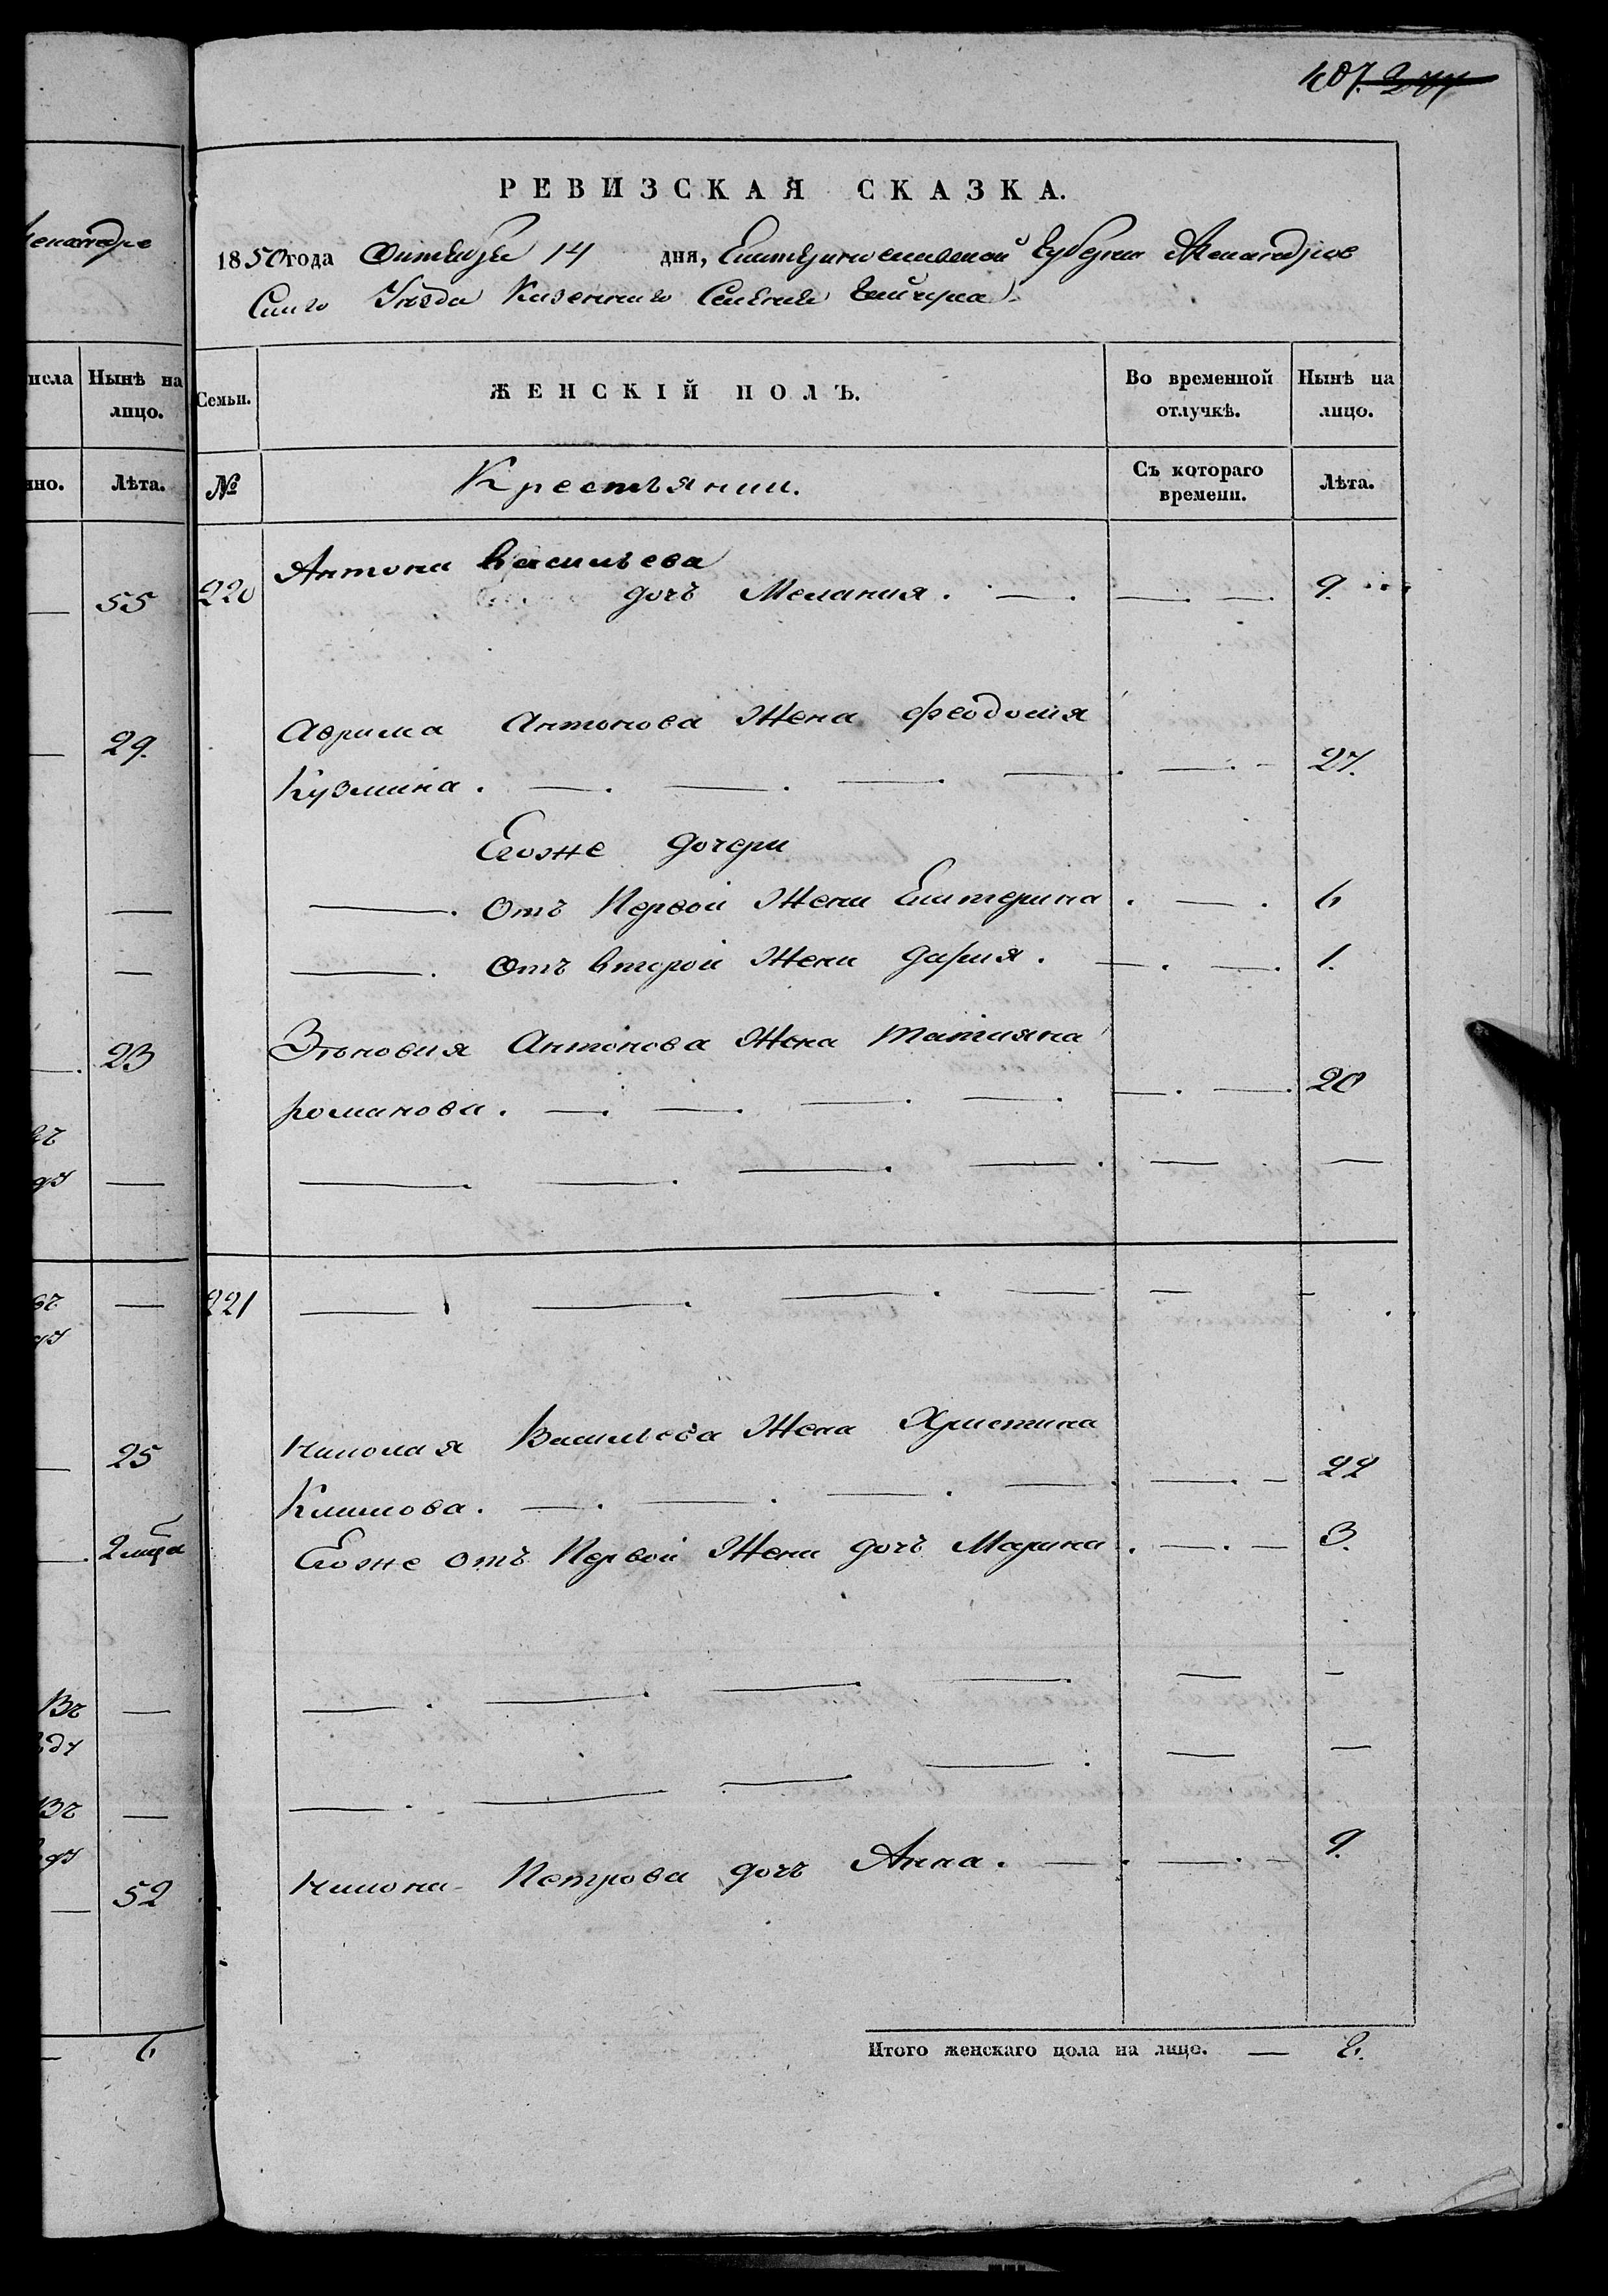 407. 277
РЕВИЗСКАЯ СКАЗКА.
1850 года Октября 14 дня, Екатеринославской Губернии Александров
Скаго Уезда Казеннаго Селения Гайчула
Семьи.
ЖЕНСКІЙ ПОЛЪ.
Во временной отлучкѣ.
Нынѣ на лицо.
№
Крестьянии.
Съ котораго времени.
Лѣта.
220 Антона Васильева
дочъ Мелания. — — — 9.
Аврама Антонова Жена Феодосия
Кузмина. — — — — — 27.
Егоже дочери
— Отъ Первой Жени Екатерина — 6
— Отъ второй Жени Дария. — — 1.
Зѣновия Антонова Жена Татияна
романова. — — — — — — 20
— — — — — —
221 — — — — — —
Николая Васильева Жена Христина
Климова. — — — — — — 22
Егоже отъ Первой Жени дочъ Марина — — 3.
— — — — — —
— — — — — —
Петрова дочъ Анна. — — — 9.
Итого женскаго пола на лицо. — 8.
лександро
исла
Нынѣ на лицо.
но.
Лѣта.
— 55
— 29.
—
—
— 23
—
—
— 25
— 2 мца
Въ —
Въ —
— 52
— 6.